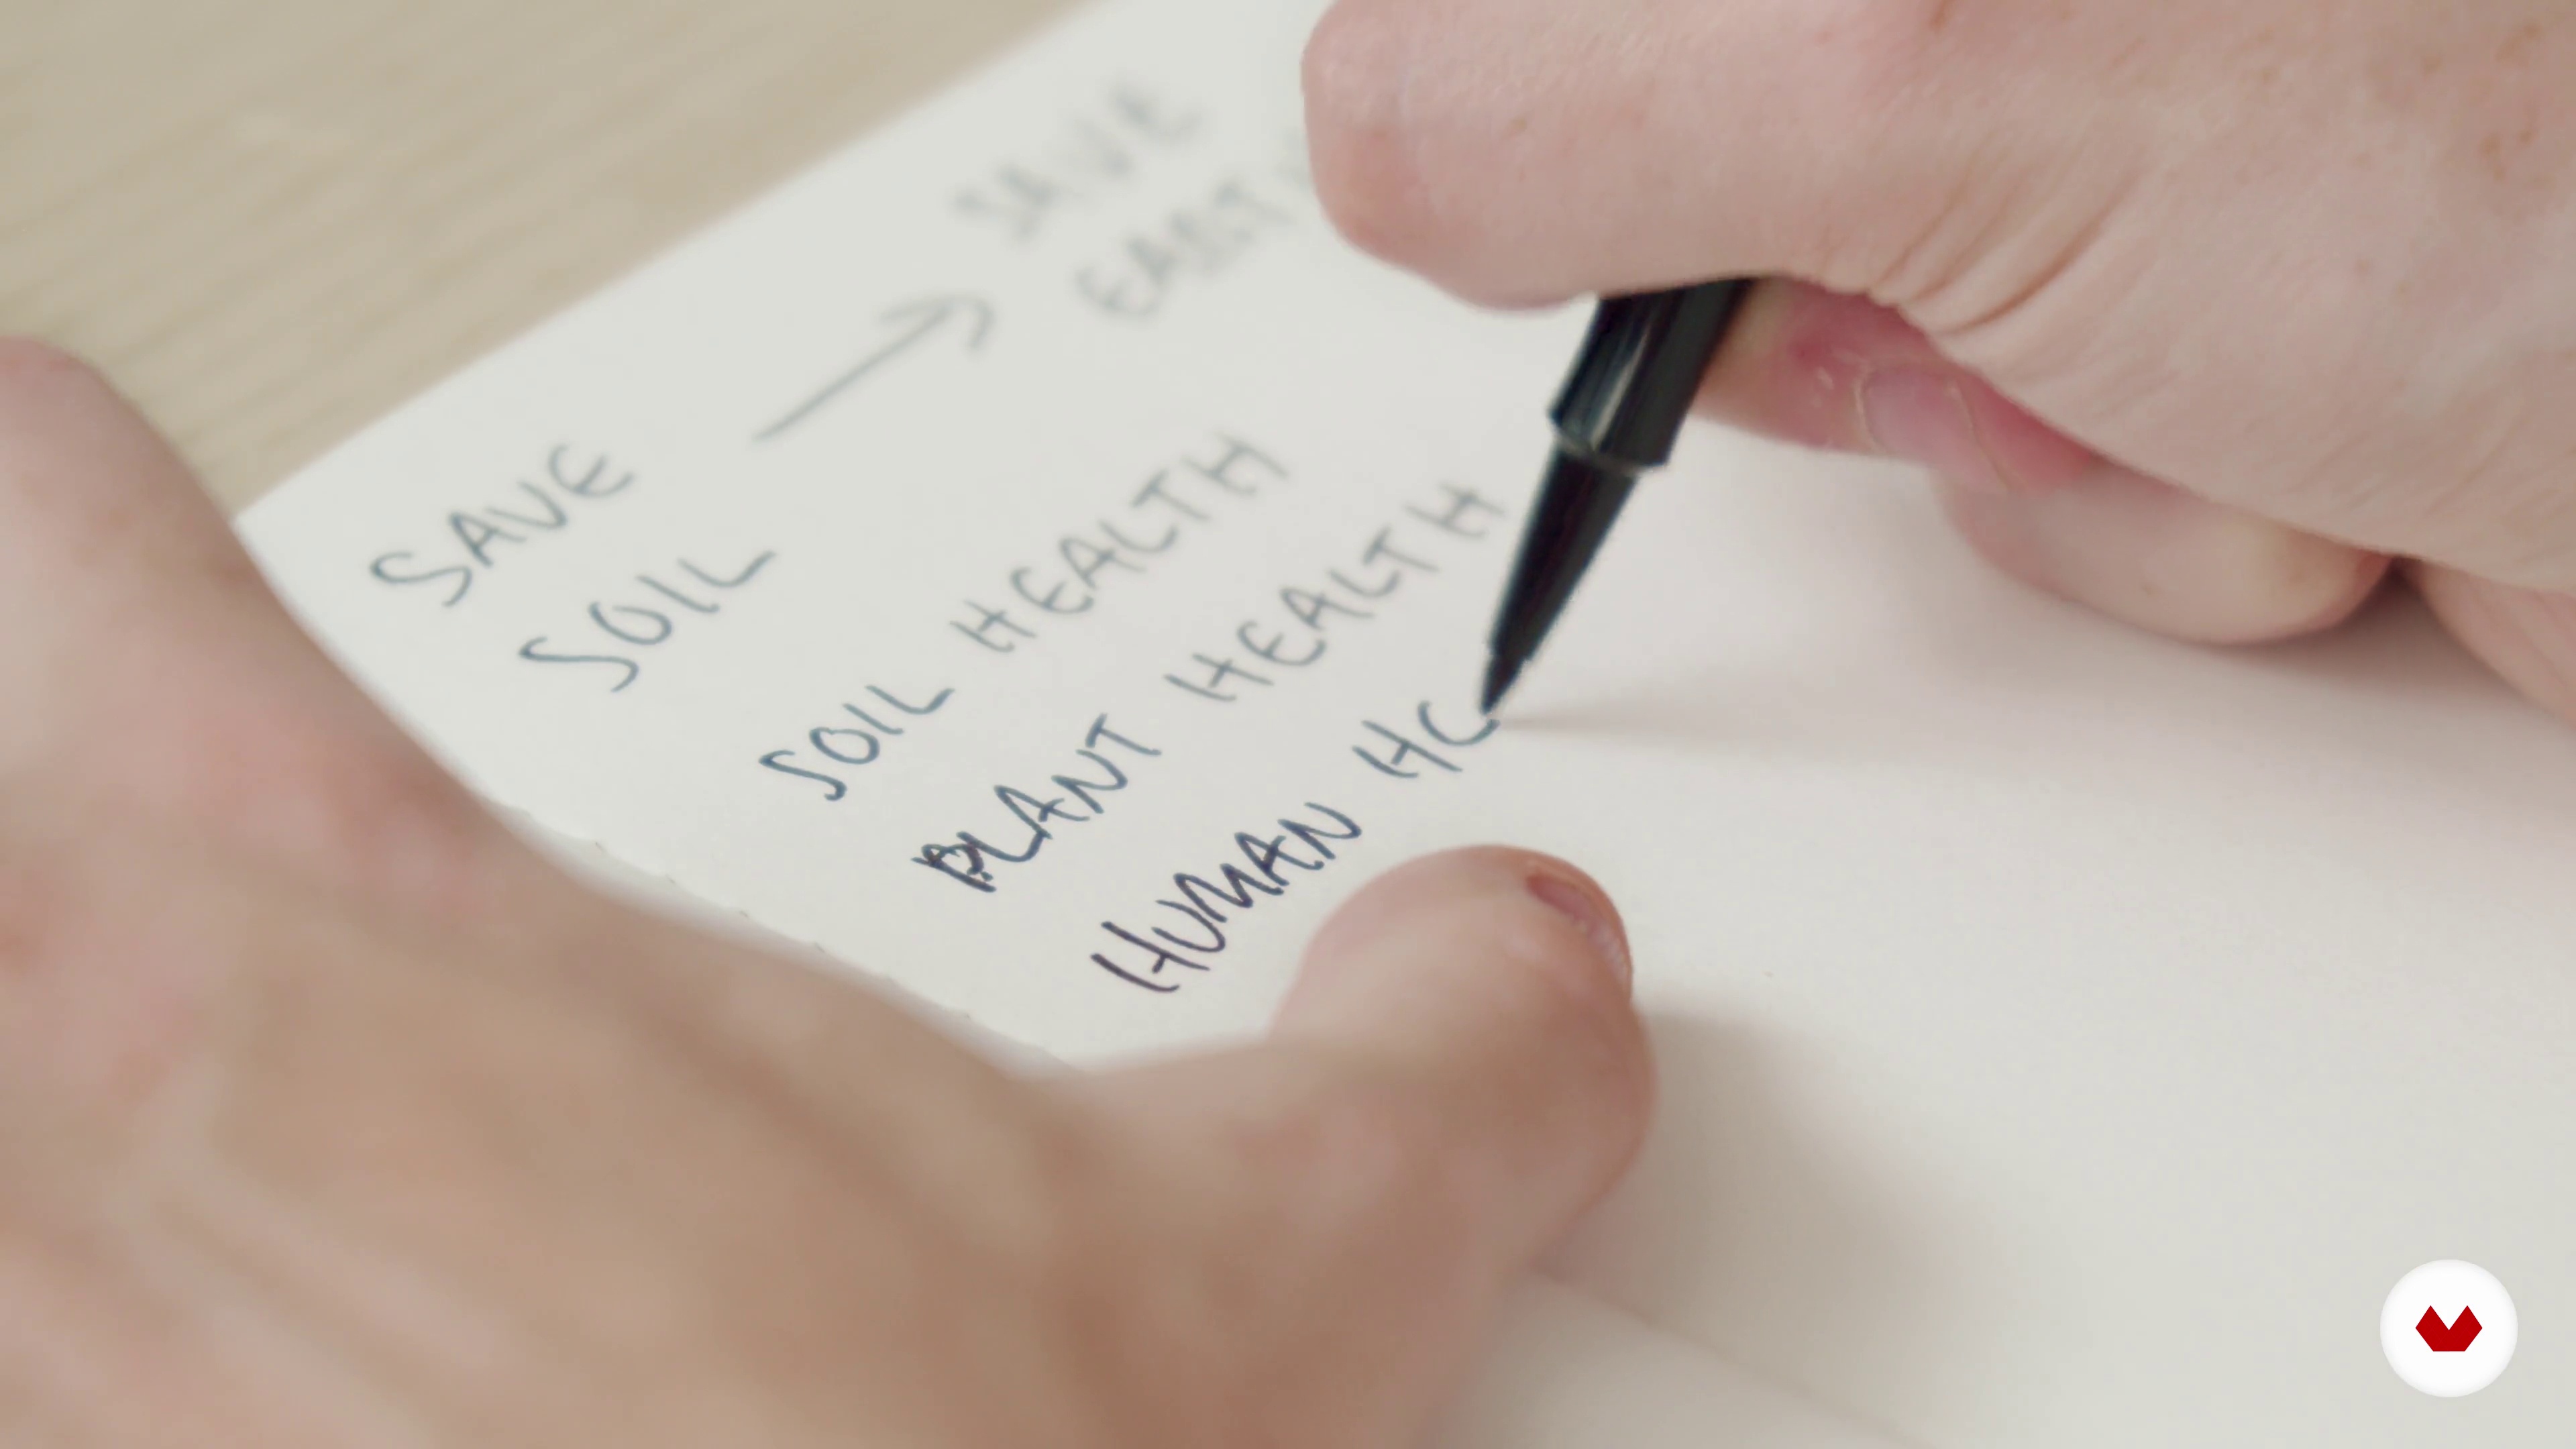 SAVE
SOIL
→
SAVE
EART
SOIL HEALTH
PLANT HEALTH
HUMAN HE